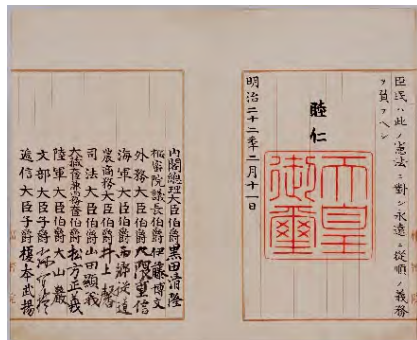 臣民ハ此ノ憲法ニ對シ永遠ニ從順ノ義務
ヲ負フヘシ
睦仁
天皇御璽
明治二十二年二月十一日
內閣總理大臣伯爵黑田清隆
樞密院議長伯爵伊藤博文
外務大臣伯爵大隈重信
海軍大臣伯爵西鄕從道
農商務大臣伯爵井上馨
司法大臣伯爵山田顯義
大藏大臣兼內務大臣伯爵松方正義
陸軍大臣伯爵大山巖
文部大臣子爵森有禮
遞信大臣子爵榎本武揚